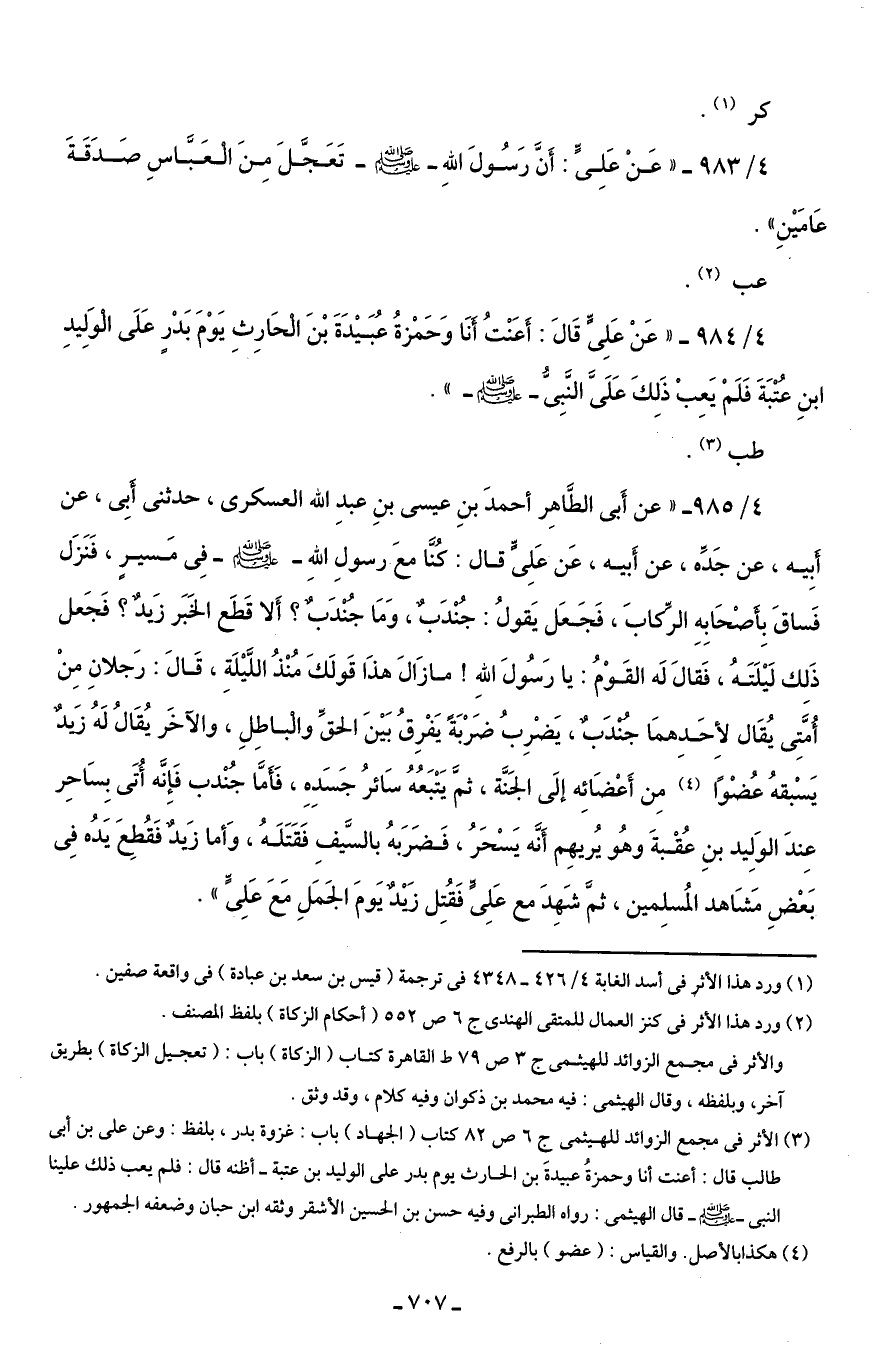 كر (١) .
٤/ ٩٨٣ ـ « عَنْ عَلِىٍّ : أَنَّ رَسُولَ اللهِ ـ ﷺ ـ تَعَجَّلَ مِنَ الْعَبَّاسِ صَدَقَةَ
عَامَيْنِ» .
عب (٢) .
٤/ ٩٨٤ ـ « عَنْ عَلِىٍّ قَالَ : أَعَنْتُ أَنَا وَحَمْزةُ عُبَيْدَةَ بْنَ الْحَارِثِ يَوْمَ بَدْرٍ عَلَى الْوَلِيدِ
ابنِ عُتْبَةَ فَلَمْ يَعِبْ ذَلِكَ عَلَىَّ النَّبِىُّ ـ ﷺ ـ » .
طب (٣) .
٤/ ٩٨٥ـ « عن أَبى الطَّاهِرِ أحمدَ بنِ عيسى بنِ عبدِ الله العسكرى ، حدثنى أَبِى ، عن
أَبِيه ، عن جَدِّه ، عن أَبيه ، عَن عَلِىٍّ قال : كُنَّا مَعَ رسولِ اللهِ ـ ﷺ ـ فِى مَسيرٍ ، فَنَزَلَ
فَساقَ بِأَصْحَابِهِ الرِّكابَ ، فَجَعَل يَقولُ : جُنْدَبٌ ، وَمَا جُنْدَبٌ ؟ ألا قَطَع الخَبَر زَيدٌ ؟ فَجَعل
ذَلِك لَيْلَتَهُ ، فَقالَ لَه القَوْمُ : يا رَسُولَ الله ! مازَالَ هذَا قَولَكَ مُنْذُ اللَّيْلَةِ ، قَالَ : رَجلانِ مِنْ
أُمَّتِى يُقَال لأحَدِهمَا جُنْدَبٌ ، يَضْرِبُ ضَرْبَةً يَفْرِقُ بَيْنَ الحَقِّ والْبَاطلِ ، والآخَر يُقَالُ لَهُ زَيدٌ
يَسْبِقهُ عُضْوًا (٤) مِن أَعْضَائِه إلَى الجَنَّة ، ثمَّ يَتْبَعُهُ سائرُ جَسَدِه ، فَأَمَّا جُنْدب فَإِنَّه أُتَى بِسَاحرٍ
عِندَ الوَلِيد بنِ عُقْبةَ وهُو يُرِيهِم أَنَّه يَسْحَرُ ، فَضرَبَهُ بالسَّيفِ فَقَتَلَهُ ، وَأما زَيدٌ فَقُطِعَ يَدُه فِى
بَعْضِ مَشَاهد المُسلِمين ، ثمَّ شَهِدَ مع عَلِىٍّ فَقُتِل زَيْدٌ يَومَ الجَمَلِ مَعَ عَلِىٍّ » .
(١) ورد هذا الأثر فى أسد الغابة ٤/ ٤٢٦ ـ ٤٣٤٨ فى ترجمة ( قيس بن سعد بن عبادة ) فى واقعة صفين .
(٢) ورد هذا الأثر فى كنز العمال للمتقى الهندى ج ٦ ص ٥٥٢ ( أحكام الزكاة ) بلفظ المصنف .
والأثر فى مجمع الزوائد للهيثمى ج ٣ ص ٧٩ ط القاهرة كتاب ( الزكاة ) باب : ( تعجيل الزكاة ) بطريق
آخر، وبلفظه ، وقال الهيثمى : فيه محمد بن ذكوان وفيه كلام ، وقد وثق .
(٣) الأثر فى مجمع الزوائد للهيثمى ج ٦ ص ٨٢ كتاب ( الجهاد ) باب : غزوة بدر ، بلفظ : وعن على بن أبى
طالب قال : أعنت أنا وحمزةُ عبيدةَ بن الحارث يوم بدر على الوليد بن عتبة ـ أظنه قال : فلم يعب ذلك علينا
النبى ـ ﷺ ـ قال الهيثمى : رواه الطبرانى وفيه حسن بن الحسين الأشقر وثقه ابن حبان وضعفه الجمهور .
(٤) هكذابالأصل. والقياس : ( عضو ) بالرفع .
ـ ٧٠٧ ـ